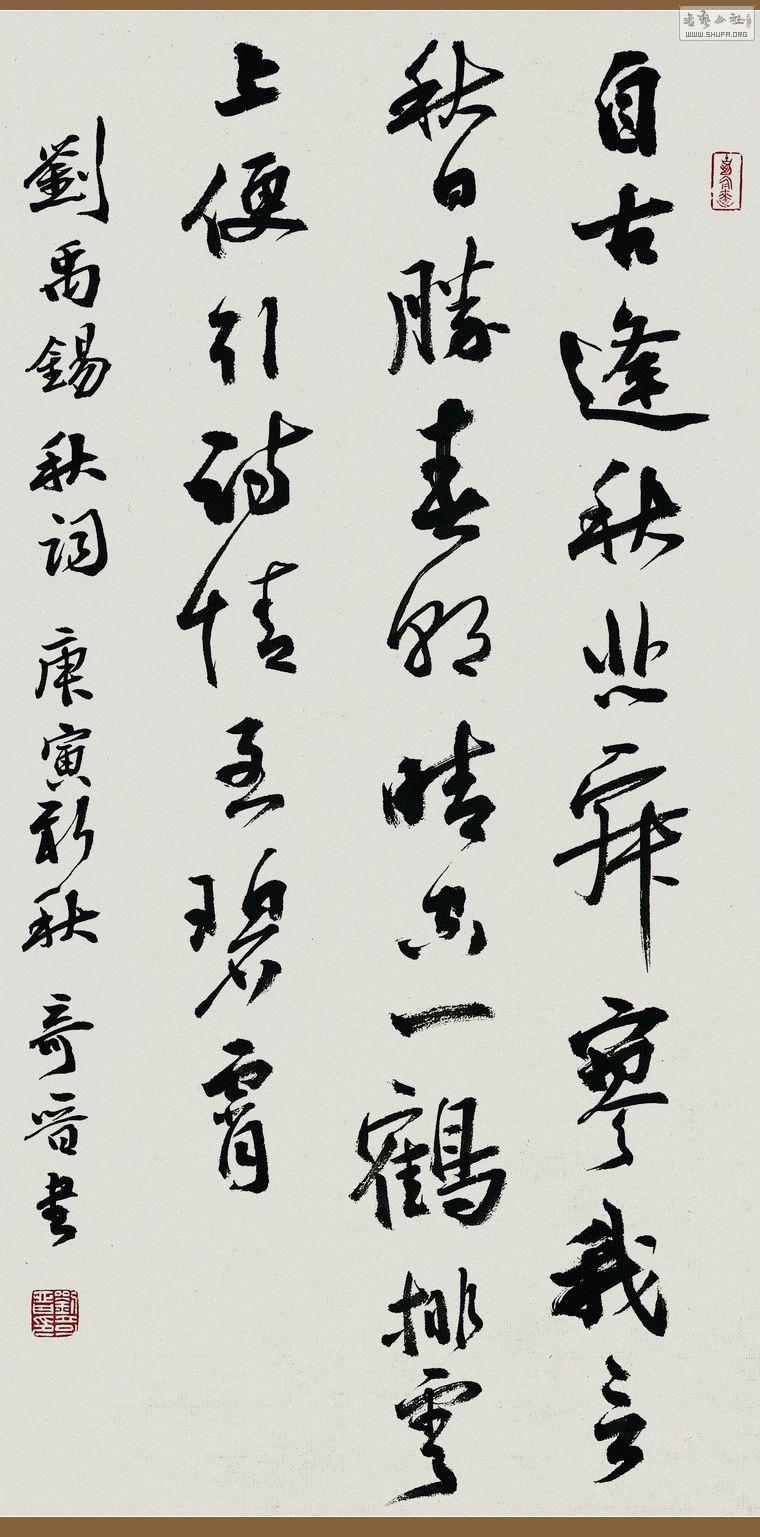 自古逢秋悲寂寥我言
秋日勝春朝晴空一鶴排雲
上便引詩情至碧霄
劉禹錫秋詞 庚寅新秋 奇晋書
劉奇晋印
书艺公社
WWW.SHUFA.ORG